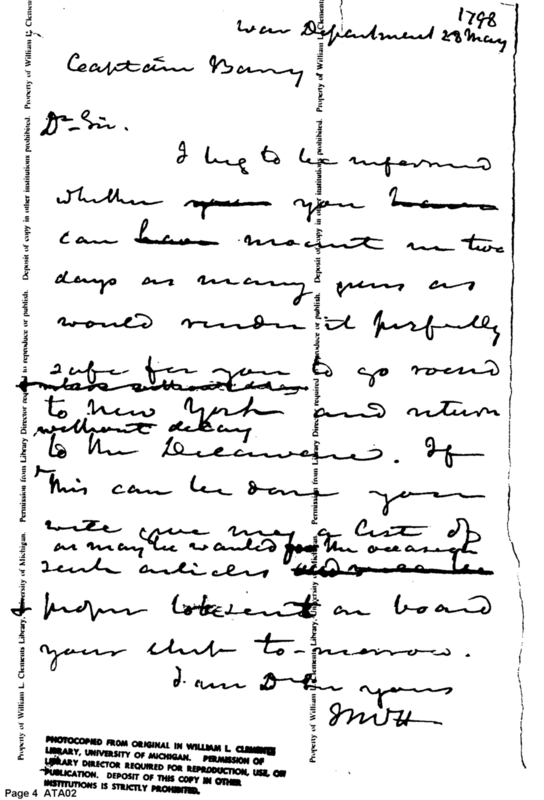 1798
War Department 28 May
Captain Barry
Dr Sir.
I beg to be informed
whether you
can mount in two
days as many guns as
would render it perfectly
safe for you to go round
to New York and return
without delay
to the Delaware. If
this can be done you
will give me a list of
as may be wanted for the occasion
such articles
proper to be sent on board
your ship to-morrow.
I am Dr Sir yours
JMcH
Property of William L. Clements Library, University of Michigan. Permission from Library Director required to reproduce or publish. Deposit of copy in other institutions prohibited. Property of William L. Clements
Property of William L. Clements Library, University of Michigan. Permission from Library Director required to reproduce or publish. Deposit of copy in other institutions prohibited. Property of William L. Clements
PHOTOCOPIED FROM ORIGINAL IN WILLIAM L. CLEMENTS
LIBRARY, UNIVERSITY OF MICHIGAN. PERMISSION OF
LIBRARY DIRECTOR REQUIRED FOR REPRODUCTION, USE, OR
PUBLICATION. DEPOSIT OF THIS COPY IN OTHER
INSTITUTIONS IS STRICTLY PROHIBITED.
Page 4 ATA02